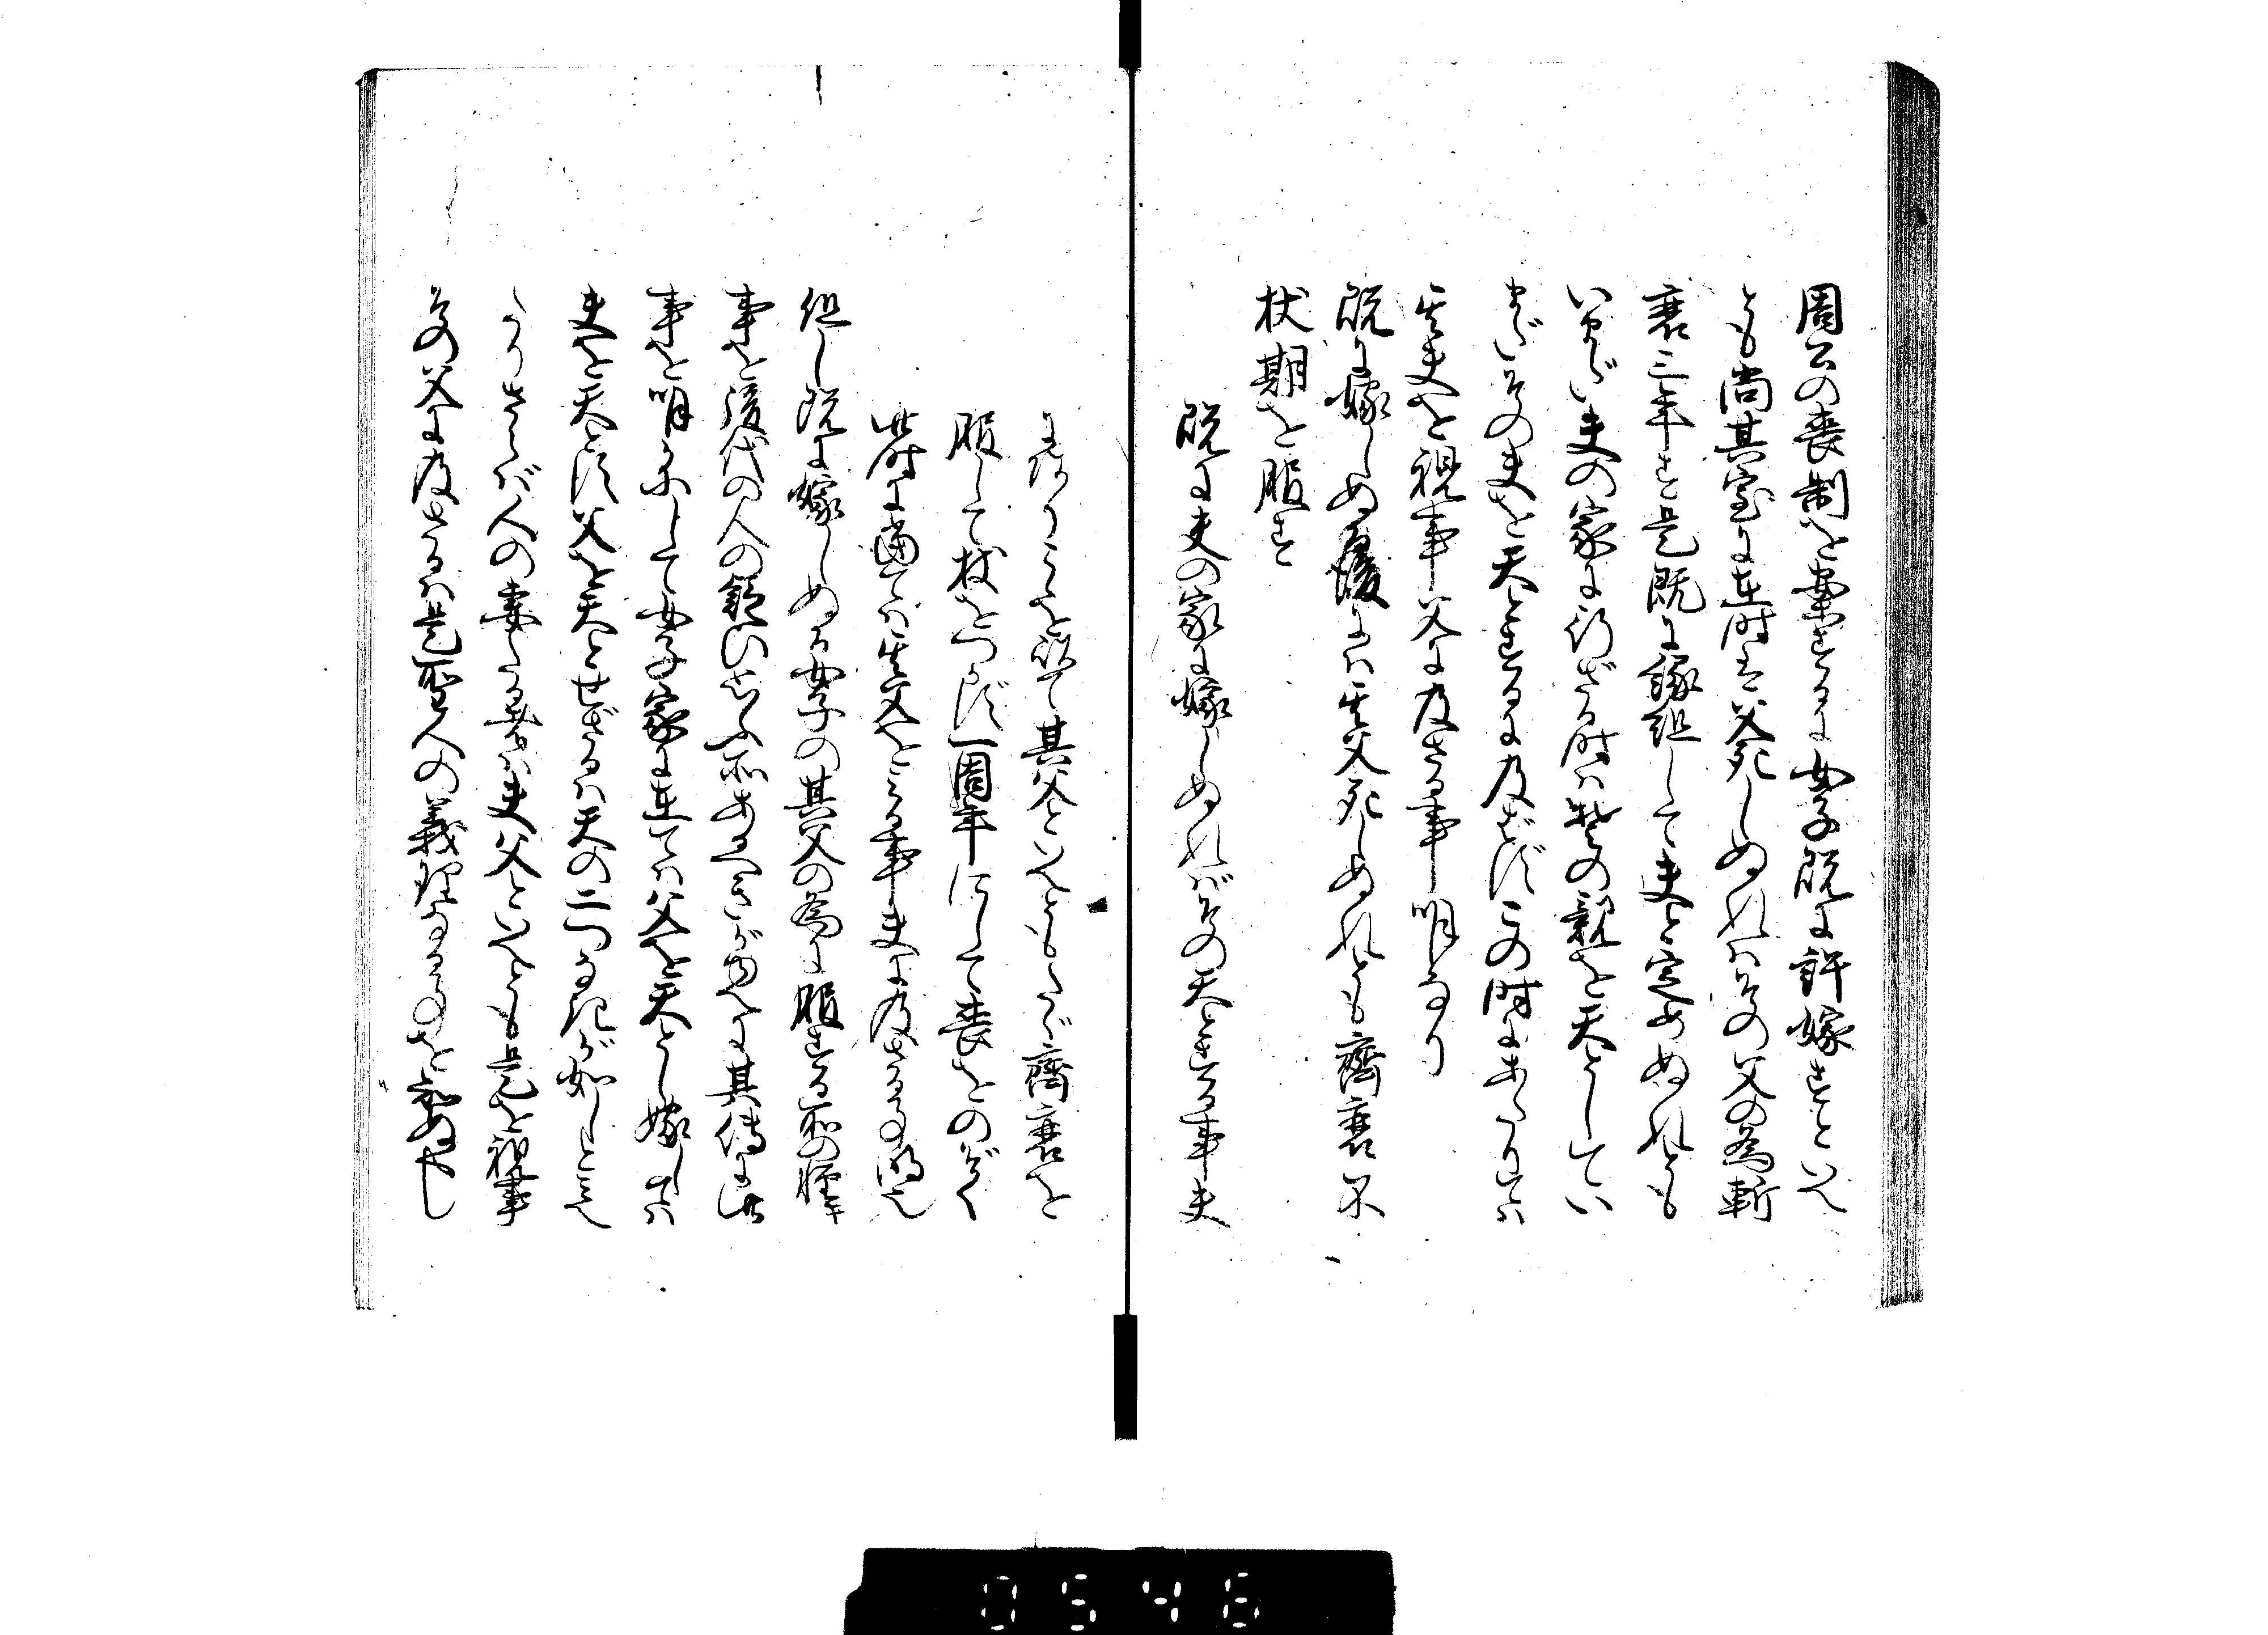 周公の喪制を案ずるに女子既に許嫁すといへ
とも尚其室に在時は父死しぬれはその父の為斬
衰三年す是既に縁組して夫と定めぬれとも
いまだ夫の家に行ざる時は猶その親を天としてい
まだその夫を天とするに及ばず此の時にあたりては
其夫を視事父に及さる事明なり
既に嫁しぬる後には其父死しぬれとも齊衰不
杖期を服す
既に夫の家に嫁しぬればその天とする事夫
に在りこゝを以て其父といへともたゞ齊衰を
服して杖をつかず一周年にして喪をのぞく
此時に当ては其父をみる事夫に及さる事明也
但し既に嫁しぬる女子の其父の為に服する所の輕
事を後代の人の疑ひおもふ所あるへきが為に其傳に此
事を明かにして女子家に在ては父を天とし嫁しては
夫を天とす父を天とせざるは天の二つなきが如しとみへ
たりさらば人の妻たる者は夫父といへとも是を視事
その父に及さるは是聖人の義理なる事を知ぬへし
0546